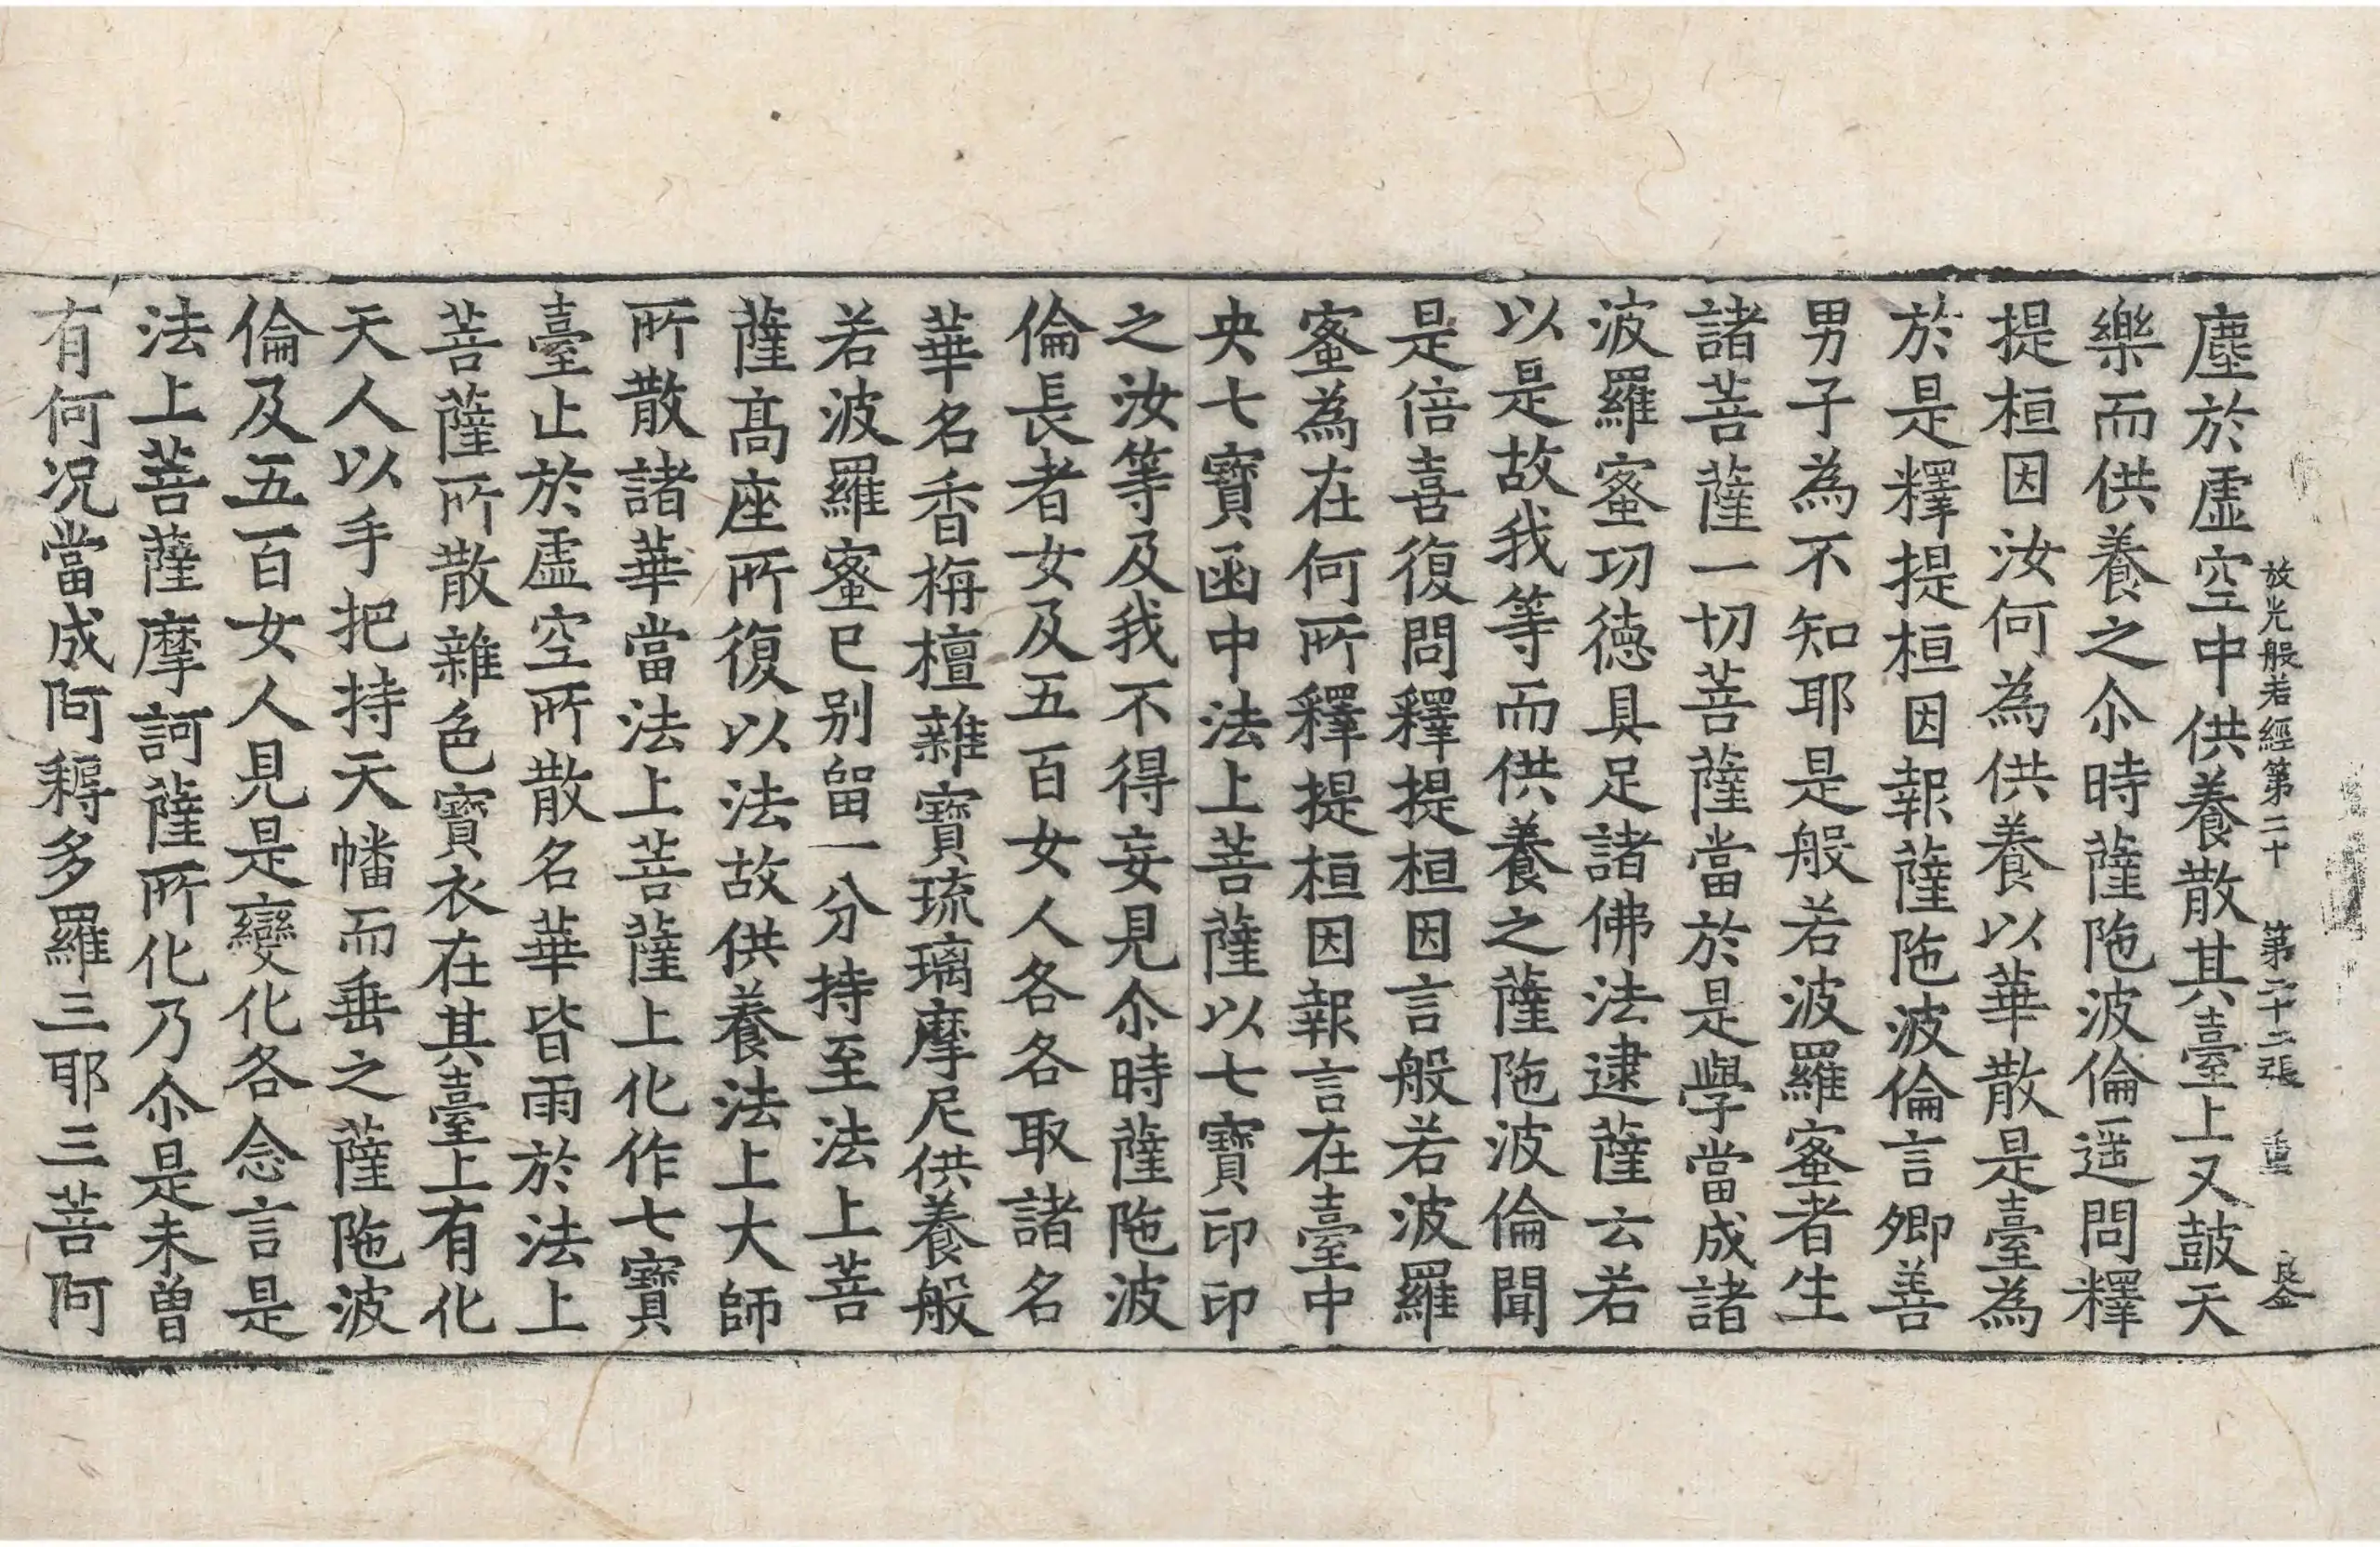 放光般若經第二十 第二十二張 重 良金
塵於虛空中供養散其臺上又鼓天
樂而供養之尒時薩陁波倫遥問釋
提桓因汝何為供養以華散是臺為
於是釋提桓因報薩陁波倫言卿善
男子為不知耶是般若波羅蜜者生
諸菩薩一切菩薩當於是學當成諸
波羅蜜功德具足諸佛法逮薩云若
以是故我等而供養之薩陁波倫聞
是倍喜復問釋提桓因言般若波羅
蜜為在何所釋提桓因報言在臺中
央七寶函中法上菩薩以七寶印印
之汝等及我不得妄見尒時薩陁波
倫長者女及五百女人各各取諸名
華名香栴檀雜寶琉璃摩尼供養般
若波羅蜜已別留一分持至法上菩
薩高座所復以法故供養法上大師
所散諸華當法上菩薩上化作七寶
臺止於虛空所散名華皆雨於法上
菩薩所散雜色寶衣在其臺上有化
天人以手把持天幡而垂之薩陁波
倫及五百女人見是變化各念言是
法上菩薩摩訶薩所化乃尒是未曽
有何况當成阿耨多羅三耶三菩阿